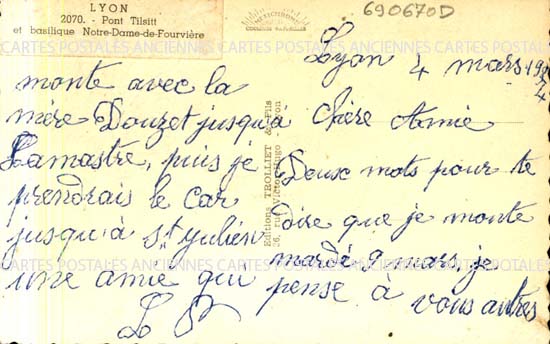 LYON
2070. - Pont Tilsitt
et basilique Notre-Dame-de-Fourvière
690670D
Lyon 4 mars
Chère Amie
Deux mots pour te
dire que je monte
mardi 9 mars, je
monte avec la
mère Douzet jusqu'à
Lamastre, puis je
prendrais le car
jusqu'à St Julien
une amie qui pense à vous autres
Editions TROLLIET & Fils
26, rue Victor-Hugo - Lyon
CARTES POSTALES ANCIENNES CARTES POSTALES ANCIENNES
CARTES POSTALES ANCIENNES CARTES POSTALES ANCIENNES